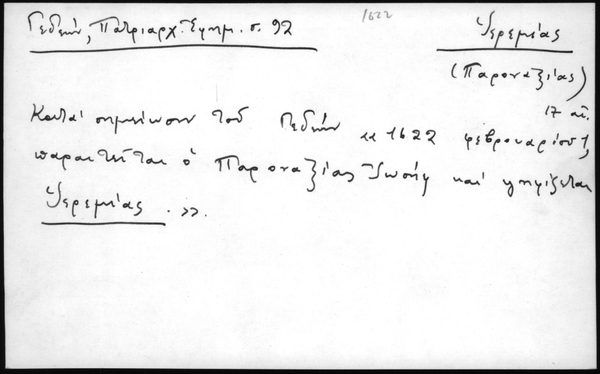 Γεδεών, Πατριαρχ. Εφημ. σ. 92
1622
Ἱερεμίας
(Παροναξίας)
17 αι.
Κατά σημείωσιν τοῦ Γεδεών «1622 φεβρουαρίου 1,
παραιτεῖται ὁ Παροναξίας Ἰωσήφ καί ψηφίζεται
Ἱερεμίας.»